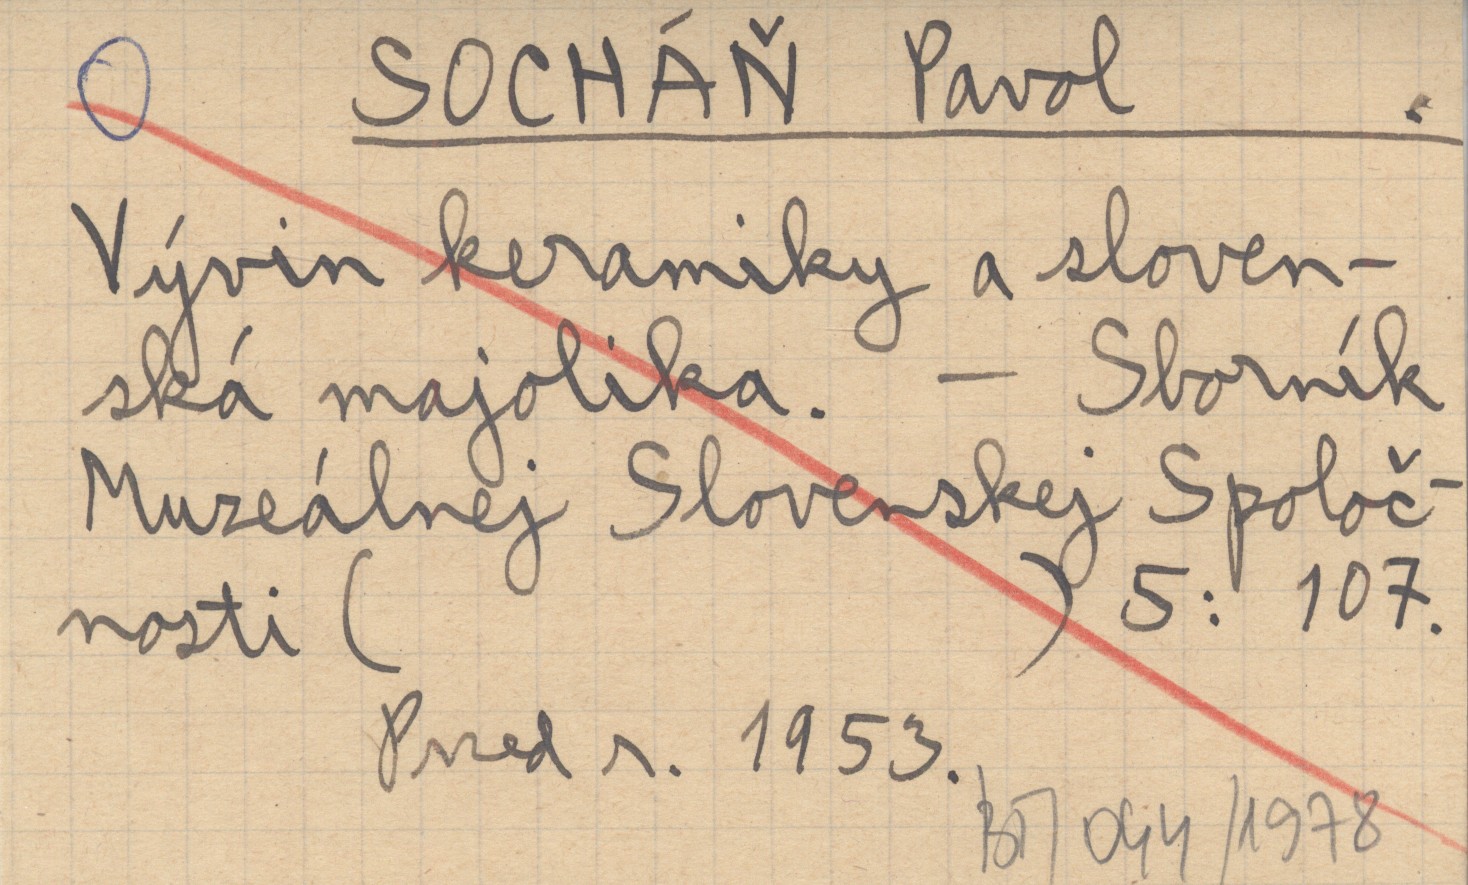 SOCHÁŇ Pavol .
Vývin keramiky a sloven-
ská majolika. — Sborník
Muzeálnej Slovenskej Spoloč-
nosti ( ) 5: 107.
Pred r. 1953.
/1978